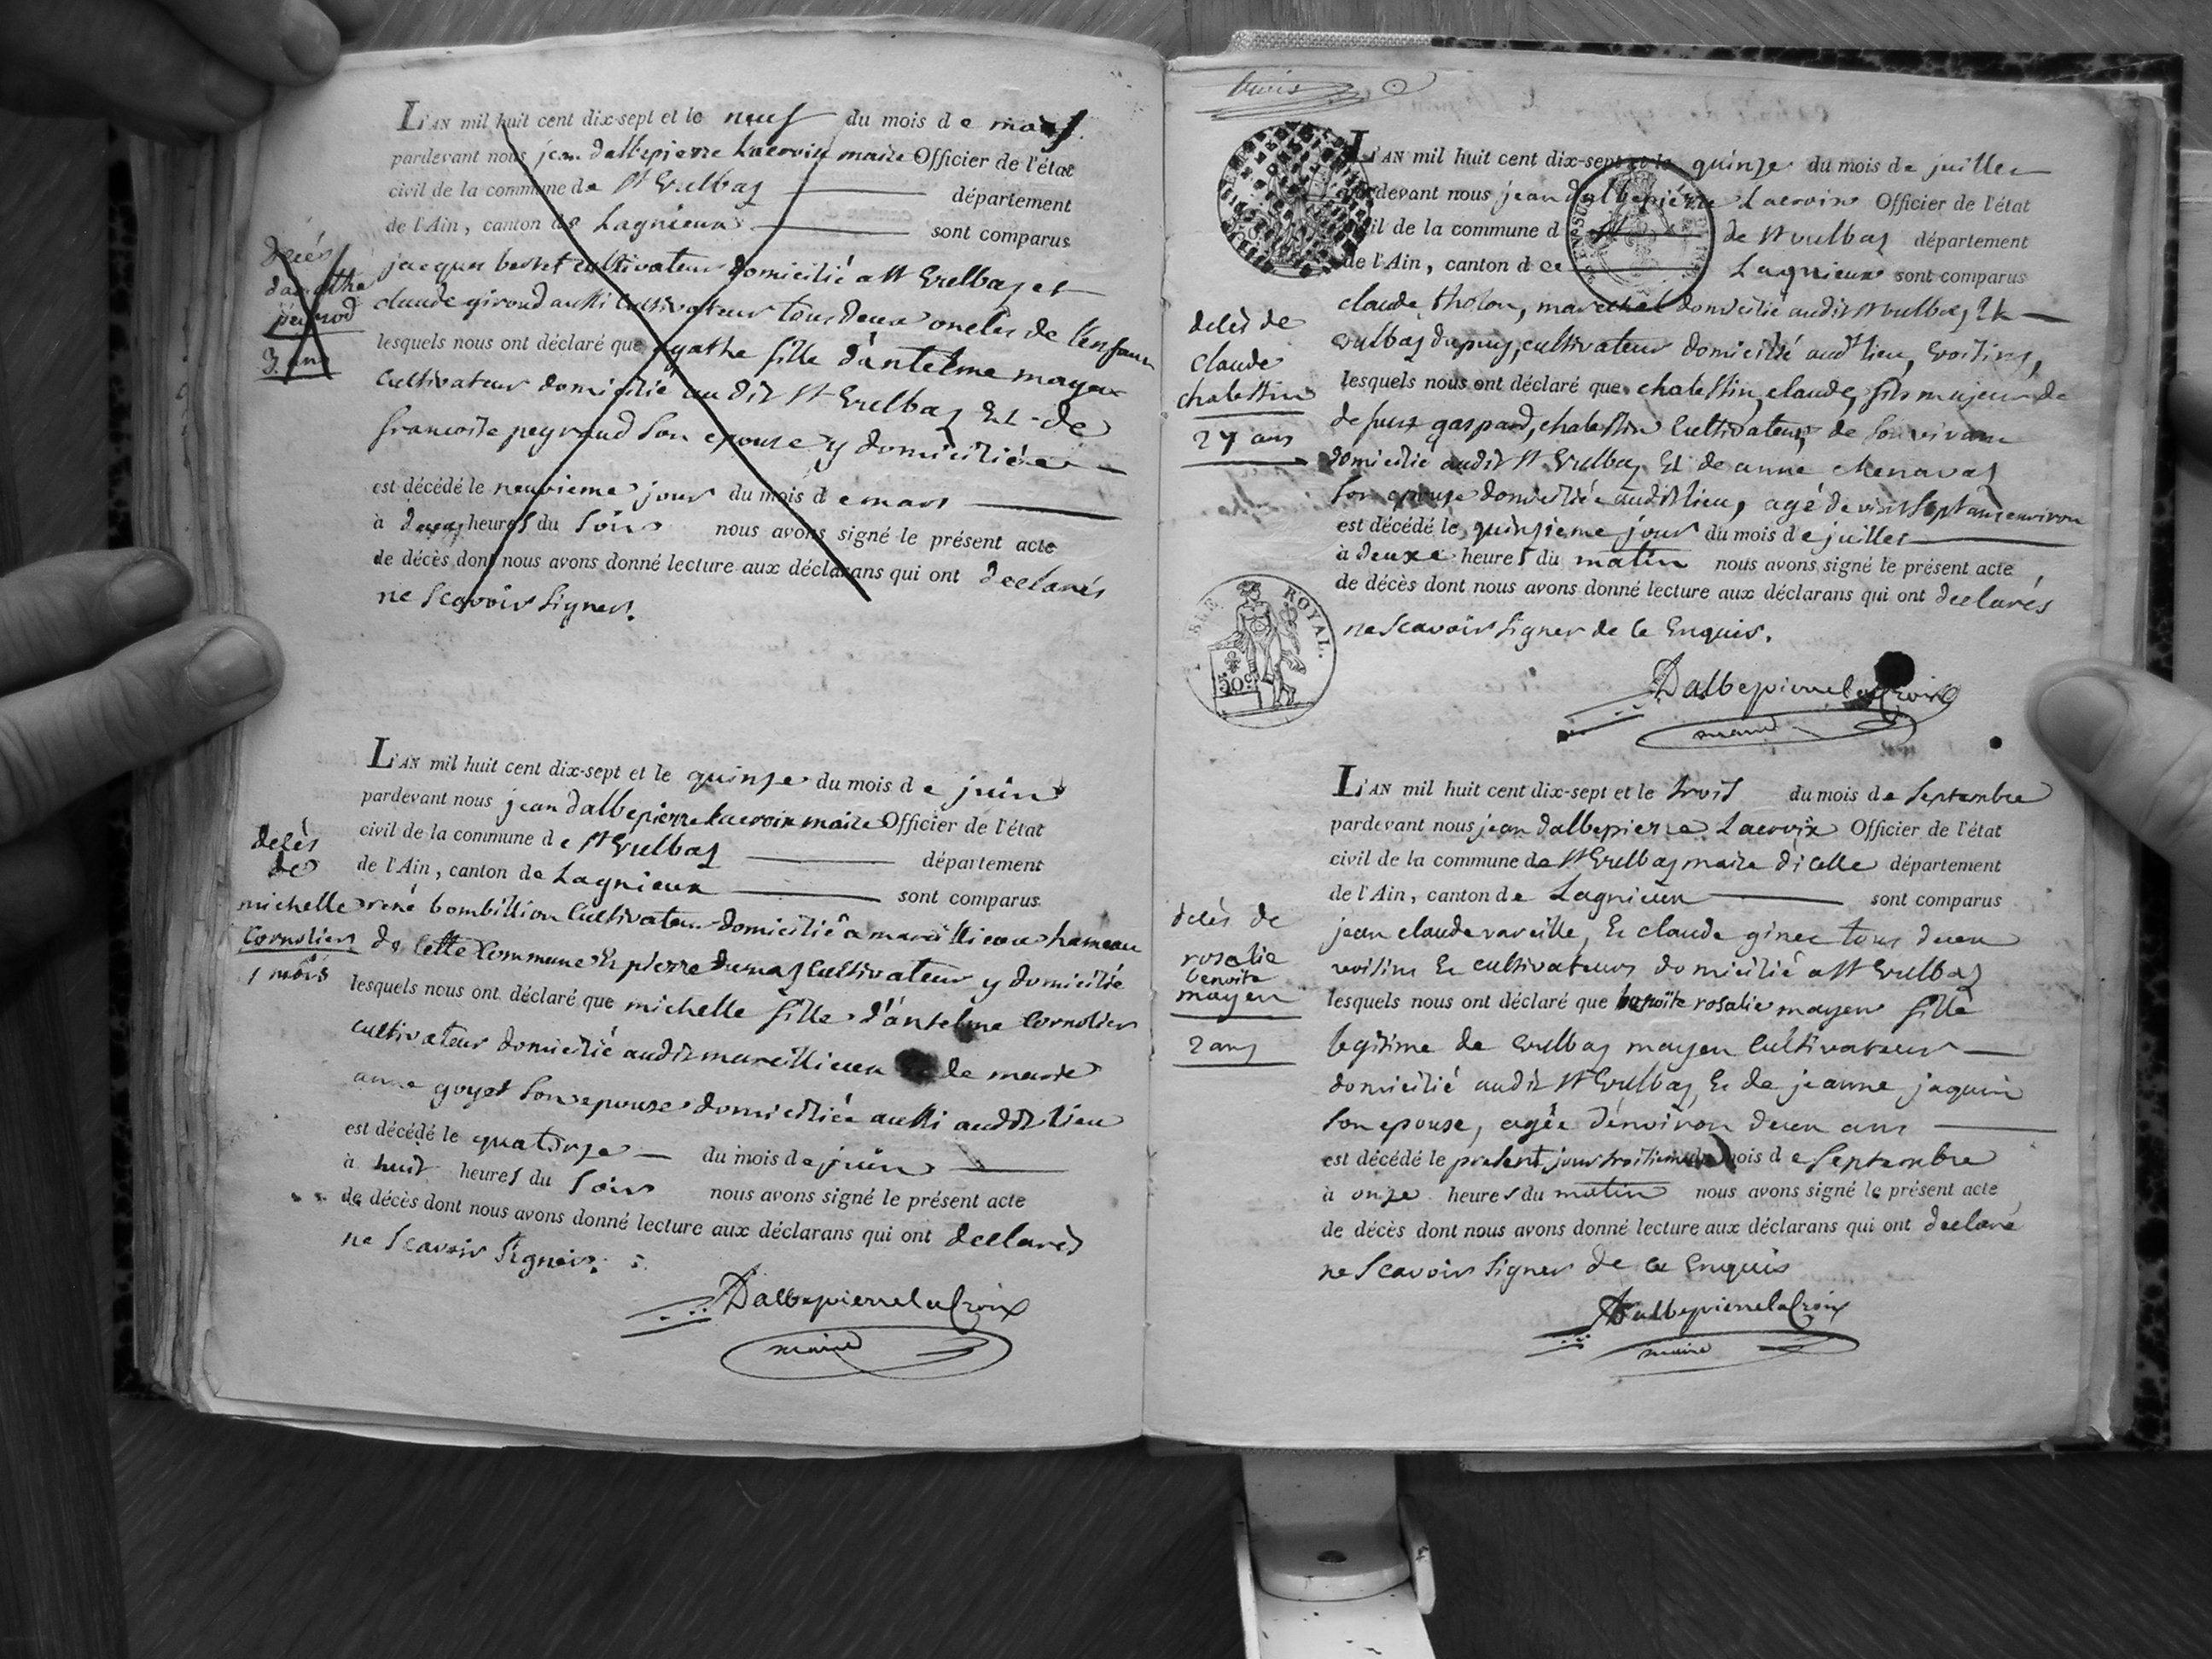 L'AN mil huit cent dix-sept et le neuf du mois de mars
pardevant nous jean dalbepierre Lacroix maire Officier de l'état
civil de la commune de St Vulbas département
de l'Ain, canton de Lagnieux sont comparus
decés
d'agathe
3 ans
jacques cultivateur domicilié a St Vulbas et
claude giroud aussi cultivateur tous deux oncles de l'enfant
lesquels nous ont déclaré que agathe fille d'antelme moyen
cultivateur domicilié au dit St Vulbas Et de
francoise peyraud son epouse y domiciliée
est décédé le neuvieme jour du mois de mars
à heures du soir nous avons signé le présent acte
de décès dont nous avons donné lecture aux déclarans qui ont declarés
ne scavoir signer.
L'AN mil huit cent dix-sept et le quinze du mois de juin
pardevant nous jean dalbepierre lacroix maire Officier de l'état
civil de la commune de St Vulbas département
de l'Ain, canton de Lagnieux sont comparus
decès
de
michelle
Cornolier
1 mois
réné bombillion cultivateur domicilié a marcillieux hameau
de cette Commune Et pierre dunas cultivateur y domicilié
lesquels nous ont déclaré que michelle fille d'antelme Cornolier
cultivateur domicilié audit marcillieux de marie
anne goyet son epouse domiciliée aussi audit lieu
est décédé le quatorze du mois de juin
à huit heures du soir nous avons signé le présent acte
de décès dont nous avons donné lecture aux déclarans qui ont declarés
ne scavoir signer.
Dalbepierrelacroix
maire
L'AN mil huit cent dix-sept et le quinze du mois de juillet
pardevant nous jean dalbepierre Lacroix Officier de l'état
civil de la commune d de St vulbas département
de l'Ain, canton de Lagnieux sont comparus
decès de
claude
chalestin
27 ans
claude tholon, marechal domicilié audit St vulbas Et
vulbas dupuis, cultivateur domicilié audt lieu, voisins,
lesquels nous ont déclaré que chalestin, claude, fils majeur de
defunt gaspard, chalestin Cultivateur, de son vivant
domicilié audit St Vulbas Et de anne chenavas
son epouse domiciliée audit lieu, agé de vint sept ans environ
est décédé le quinsieme jour du mois de juillet
à deuxe heures du matin nous avons signé le présent acte
de décès dont nous avons donné lecture aux déclarans qui ont declarés
ne scavoir signer de ce Enquis.
TIMBRE ROYAL.
50c
Dalbepierrelacroix
maire
L'AN mil huit cent dix-sept et le trois du mois de septembre
pardevant nous jean dalbepierre Lacroix Officier de l'état
civil de la commune de St Vulbas maire dicelle département
de l'Ain, canton de Lagnieux sont comparus
decès de
rosalie
benoite
moyen
2 ans
jean claude ravcille, Et claude ginet tous deux
voisins Et cultivateurs domicilié a St Vulbas
lesquels nous ont déclaré que benoite rosalie moyen fille
legitime de vulbas moyen Cultivateur
domicilié audit St Vulbas, Et de jeanne jaquin
son epouse, agée d'environ deux ans
est décédé le present jour troisieme du mois de septembre
à onze heures du matin nous avons signé le présent acte
de décès dont nous avons donné lecture aux déclarans qui ont declaré
ne scavoir signer de ce Enquis
Dalbepierrelacroix
maire